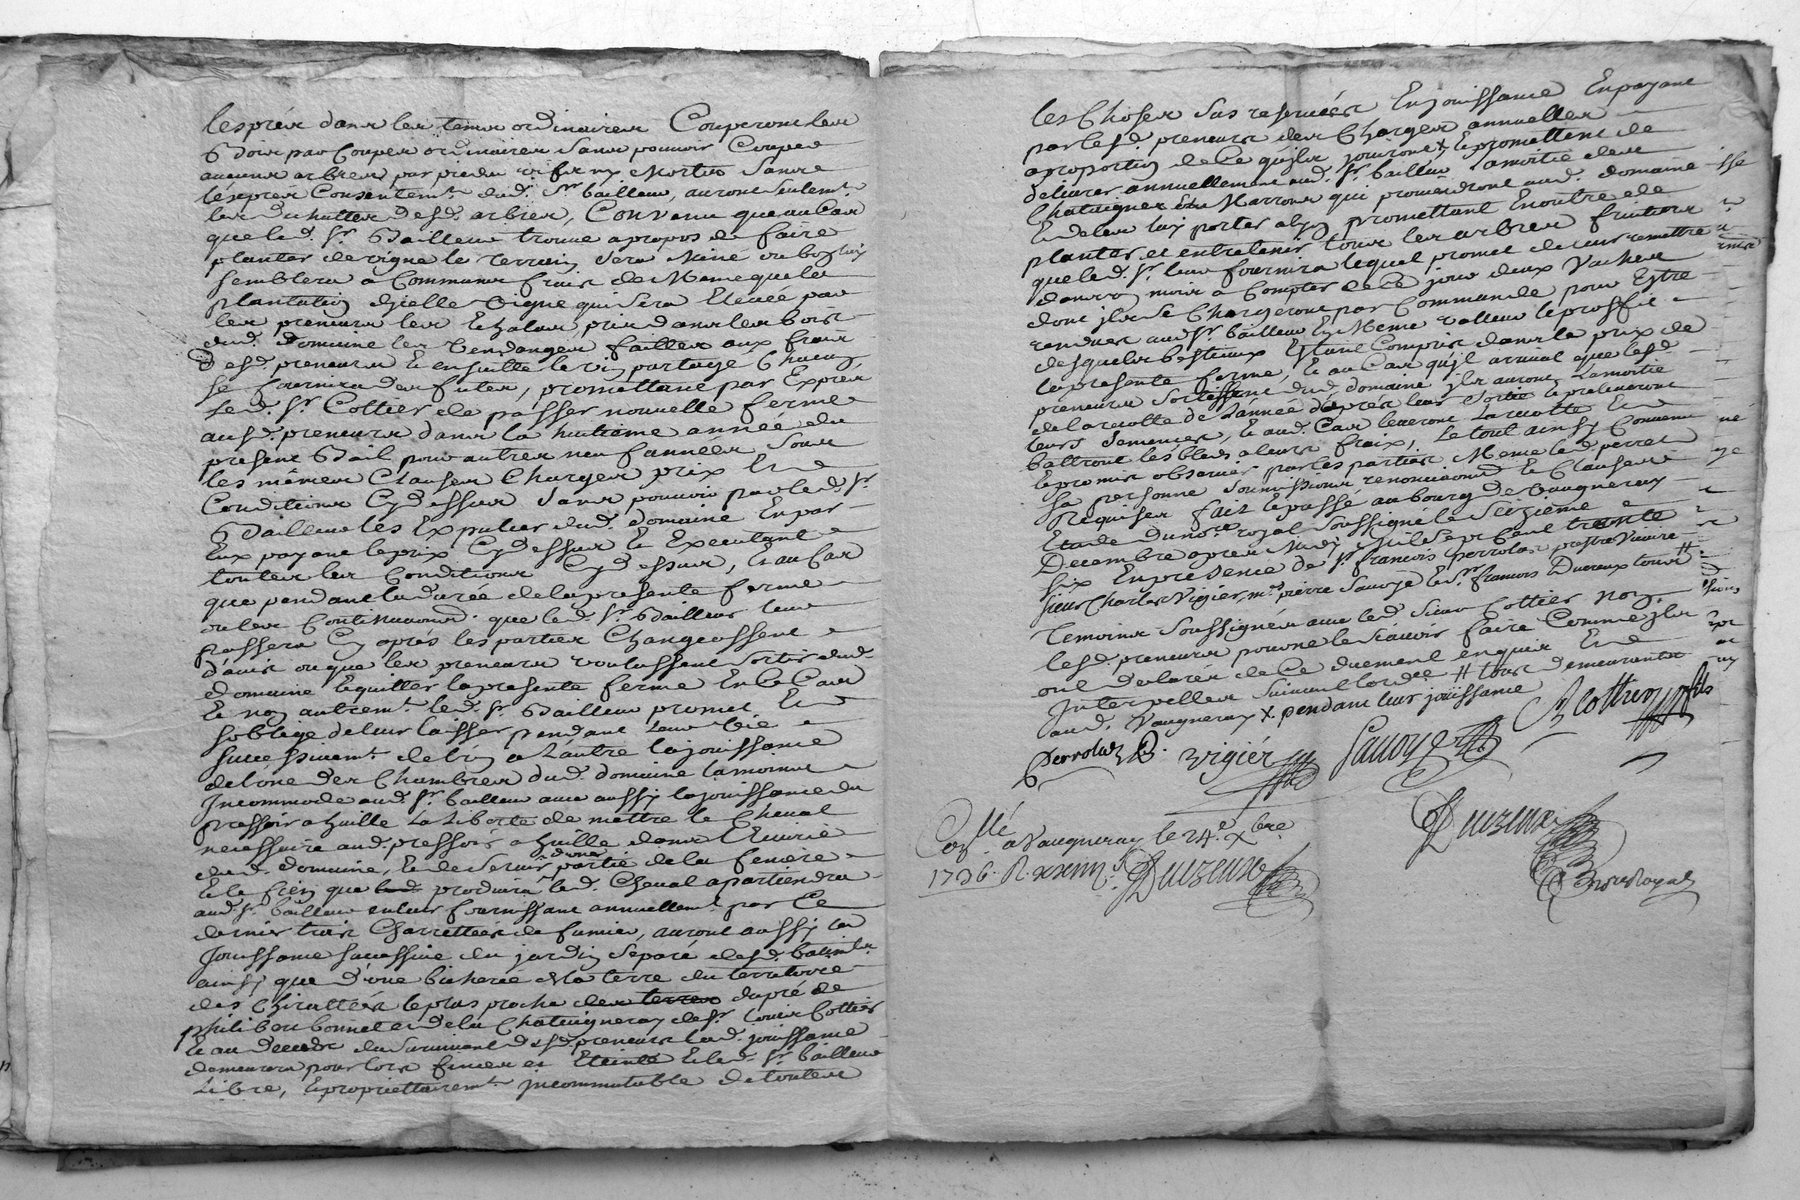 les prés dans les tems ordinaires Couperont les
Bois par Coupes ordinaires sans pouvoir Couper
aucuns arbres par pieds vifs ny Morts sans
léxprès Consentem.t dud. Sr. bailleur, auront seulem.t
les du huttes desd. arbres, Convenu que au Cas
que led. Sr. Bailleur trouve apropos de faire
planter de vigne le terrein sera Miné ou
semblera a Communs frais de Meme que la
plantation d'jcelle Vigne qui sera Elevée par
les preneurs les Echalas pris dans les bois
dud. Domaine les Vendanges failles aux frais
desd. preneurs Et ensuitte le vin partagé Chacun
se fournira des futes, promettant par Exprés
Led. Sr. Cottier de passer nouvelle ferme
ausd. preneurs dans la huitieme année du
present Bail pour autres neuf années sous
les mémes Clauses Charges prix Et
Conditions Cy dessus sans pouvoir par led. Sr
Bailleur les Expulser dud. Domaine En par
Eux payant le prix Cy dessus Et Executant
toutes les Conditions Cy dessus, Et au Cas
que pendant la durée de la presente ferme
ou les Continuaons. que led. Sr. Bailleur leur
passera Cy aprés les parties Changeassent
d'avis ou que les preneurs voulussent sortir dud.
Domaine Et quitter la presente ferme En Ce Cas
Et non autrem.t led. Sr. Bailleur promet Et
soblige de leur laisser pendant leur vie
successivem.t de lun a Lautre la jouissance
de lune des Chambres dud. domaine la moins
Incommode aud. Sr. bailleur avec aussy la jouissance du
pressoir a huille La Liberté de mettre le Cheval
necessaire aud. pressoir a huille dans l'Ecurie
dud. domaine, Et de Servir d'une partie de la feniere
Et le fien que led. produira led. Cheval apartiendra
aud. Sr. bailleur en leur fournissant annuellem.t par Ce
dernier trois Charrettées de fumier, auront aussy la
Jouissance successive du jardin separé desd. batimts
ainsy que d'une bicherée de la terre du territoire
des Chirattes le plus proche des terres du pré de
philibert bonnet et de la Chataigneray de Sr. louis Cottier
Et au Deceds du Survivant desd. preneurs lad. jouissance
demeurera pour lors finie et Eteinte Et led. Sr. bailleur
Libre, Et proprietairem.t jncommutable de toutes
les Choses sus reservées En jouissance En payant
par lesd. preneurs des Charges annuelles
a proportion de Ce qu'ils jouiront x Et promettent de
delivrer annuellement aud. Sr. bailleur La moitié des
Chataignes Et Marrons qui proviendront aud. domaine
Et de les luy porter promettant En outre de
planter et entretenir tous les arbres fruitiers
que led. Sr. leur fournira lequel promet de leur remettre
dans un mois a Compter de Ce jour deux Vaches
dont jls se Chargeront par Commande pour Estre
rendues aud. Sr. bailleur En Meme valleur le proffit
desquels bestiaux Estant Compris dans le prix de
la presente ferme, Et au Cas qu'jl arrivat que lesd.
preneurs sortissent dud. domaine jls auront La moitié
de la recolte de Lannée d'aprés leur sortie Et preleveront
leurs semences, Et aud. Cas leveront La recolte Et
battront les bleds a leurs fraix, Le tout ainsy Convenu
Et promis observer par les parties Meme led. perret
sa personne soumissions renonciaons. Et Clauses
Requises fait Et passé au bourg de Vaugneray
Etude du nore. royal soussigné le seizieme
Decembre apres Midy Mil sept Cent trente
six En presence de Sr. francois Perrolas prestre Vicaire
sieur Charles Vigier, me. pierre Savoye Et Sr. francois Ducreux tous #
Temoins soussignés avec led. Sieur Cottier non
lesd. preneurs pour ne scavoir faire Comme jls
ont declarés de Ce duement enquis Et
Interpellés suivant lordce # tous demeurants
aud. Vaugneray x pendant leur jouissance
Perrolas
vigier
Savoye
Cottier fils
Coll.né a Vaugneray le 24.e Xbre
1736. R.
Nore Royal